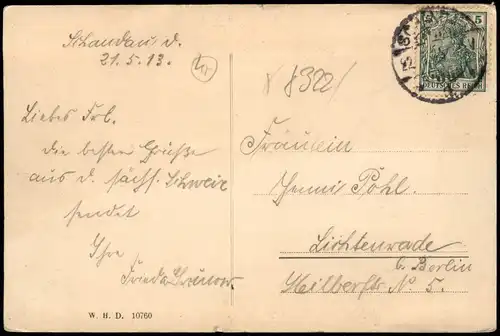 Schandau d.
21.5.13.
Liebes Frl.
die besten Grüße
aus d. sächs. Schweiz
sendet
Ihre
Frieda
W. H. D. 10760
8322
5
DEUTSCHES REICH
Fräulein
Jenni Pohl.
Lichtenrade
b. Berlin
Hilbertstr. No 5.